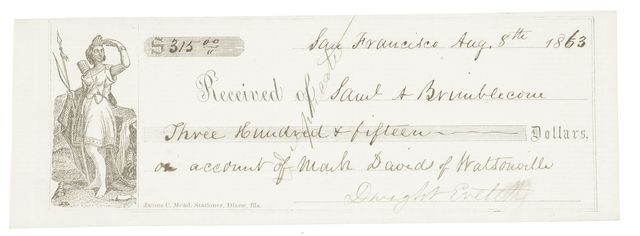 $315 00/"
San Francisco Aug. 8th 1863
Received of Saml A Brimblecom
Three Hundred & fifteen Dollars,
on account of Mark Davids of Watsonville
Dwight Eveleth
Duplicate
James C. Mead, Stationer, Dixon, Ills.